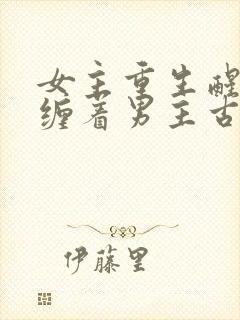 女主重生醒
缠着男主古
伊藤里